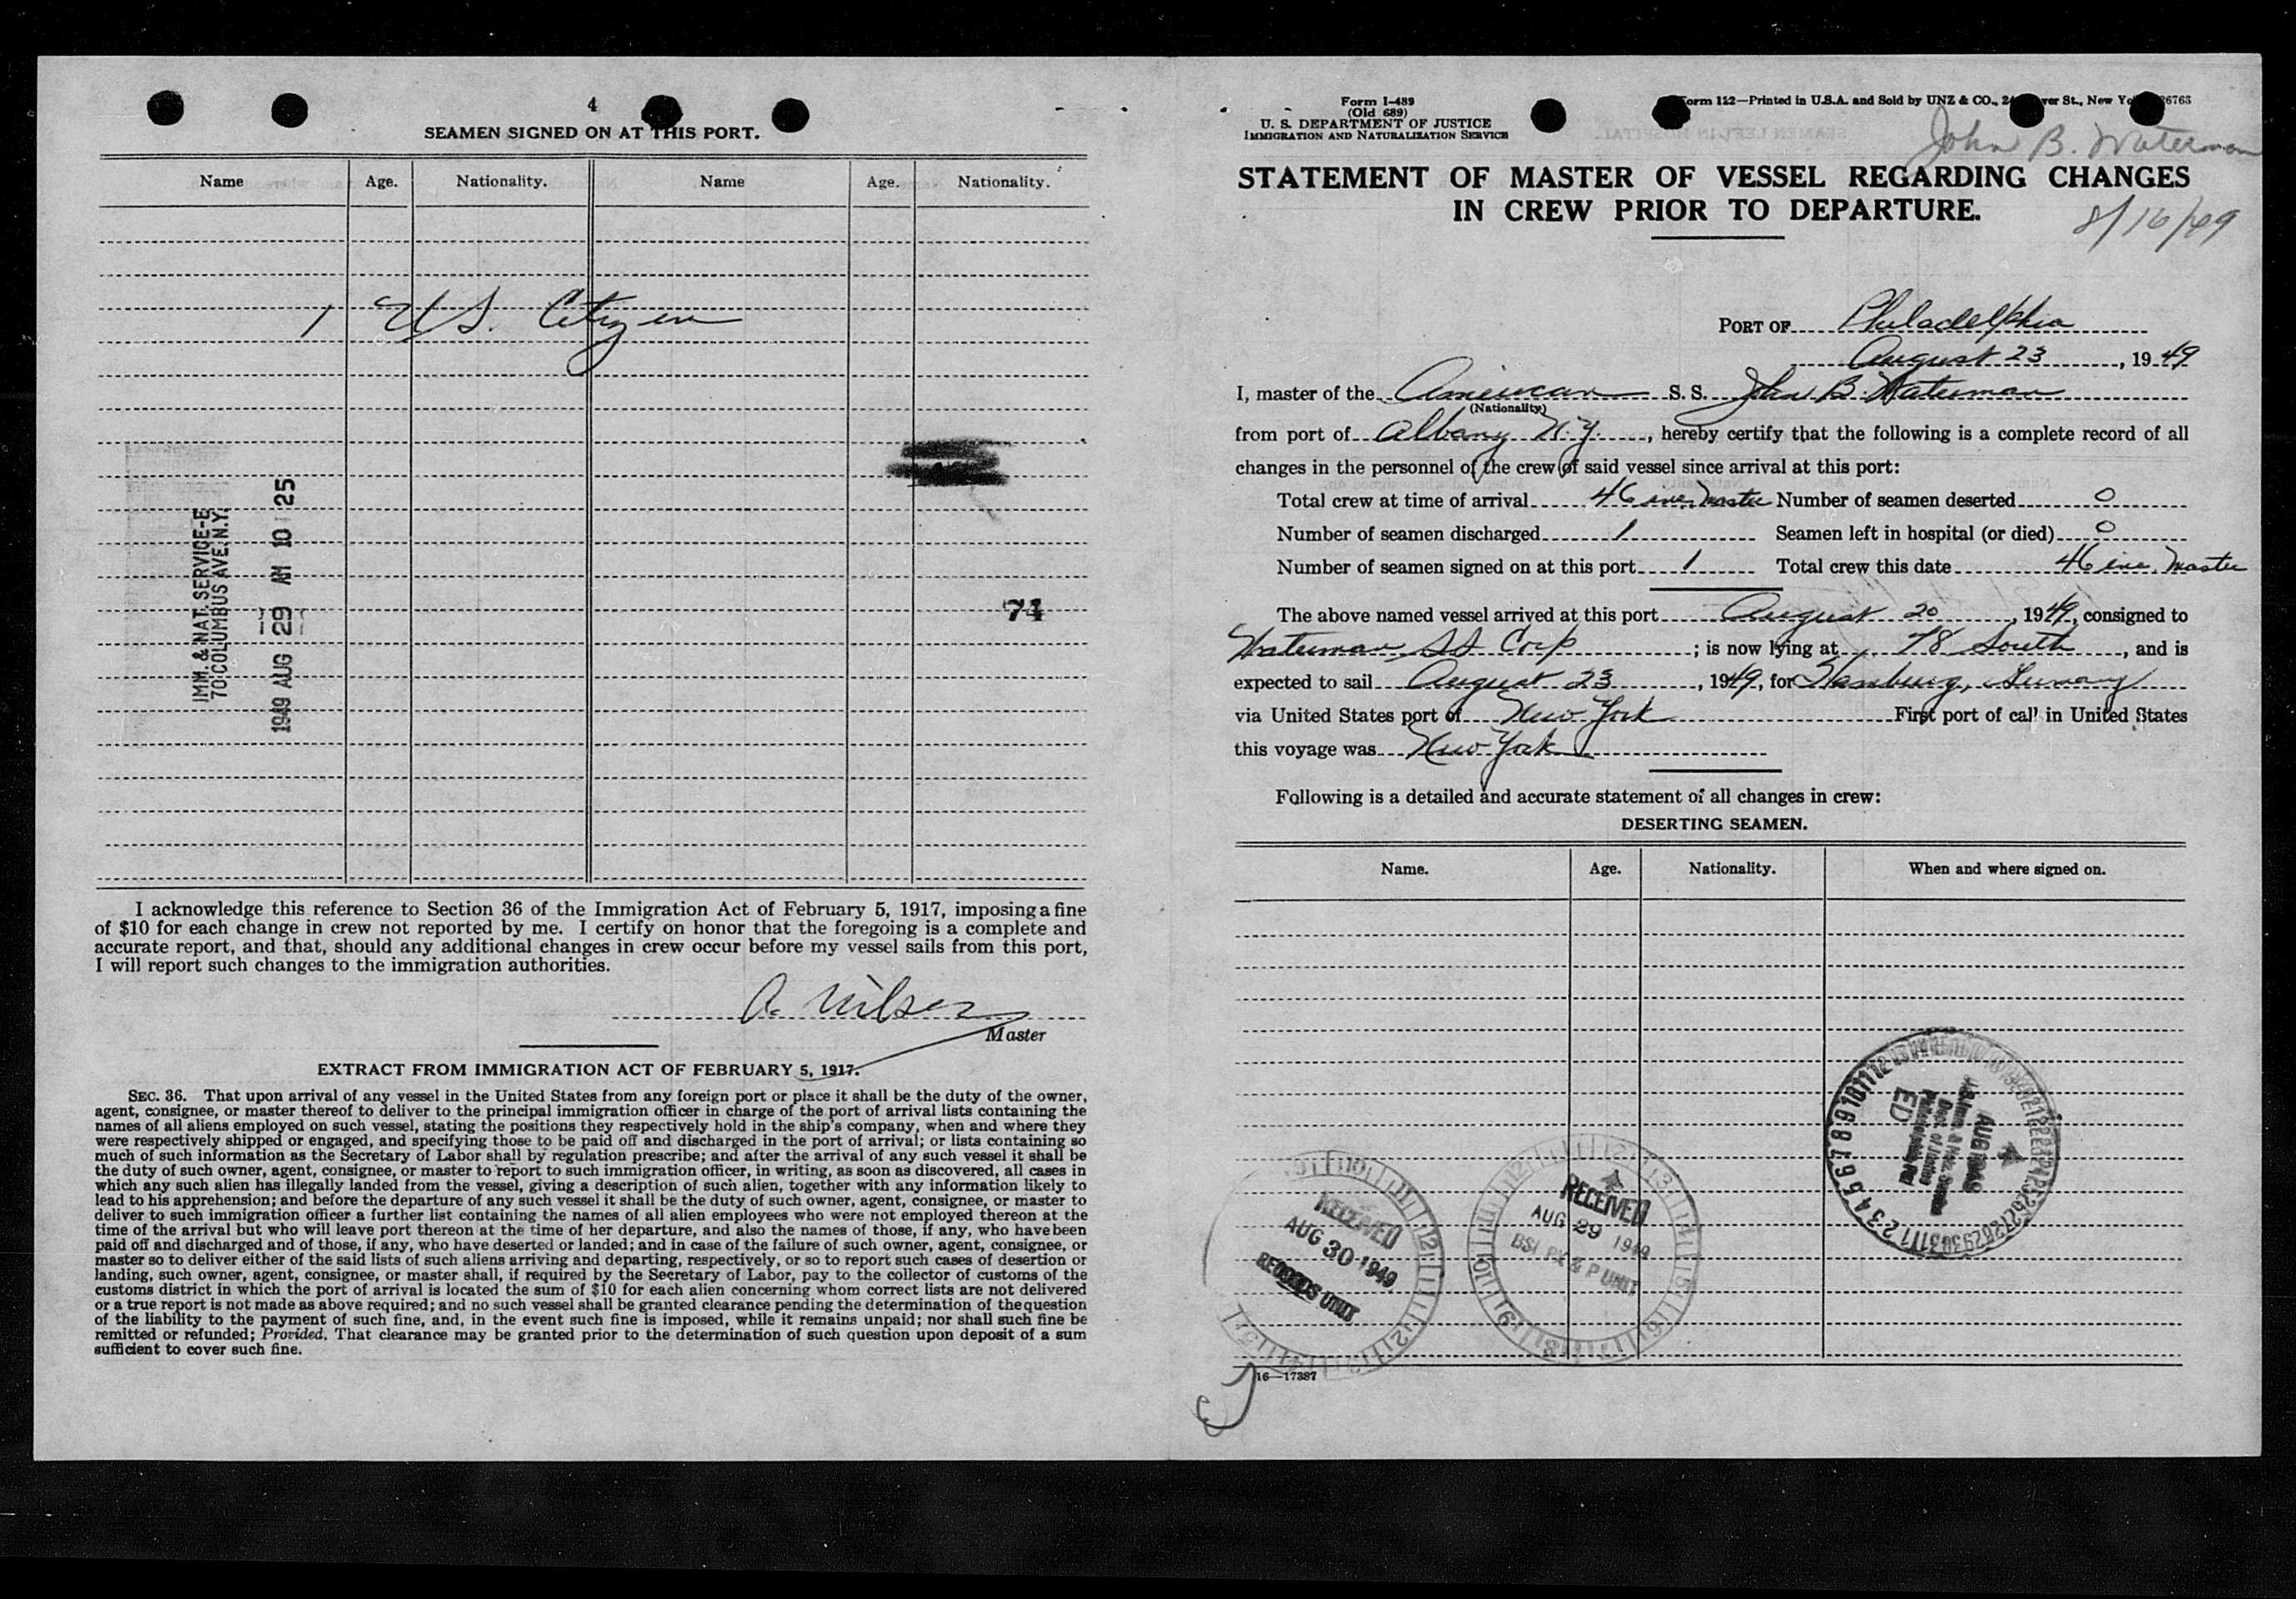 4
SEAMEN SIGNED ON AT THIS PORT.
Name Age. Nationality. Name Age. Nationality.
1 U.S. Citizen
IMM. & NAT. SERVICE-E
70 COLUMBUS AVE. N.Y.
1949 AUG 29 AM 10 25
74
I acknowledge this reference to Section 36 of the Immigration Act of February 5, 1917, imposing a fine
of $10 for each change in crew not reported by me. I certify on honor that the foregoing is a complete and
accurate report, and that, should any additional changes in crew occur before my vessel sails from this port,
I will report such changes to the immigration authorities.
A. Nilsen
Master
EXTRACT FROM IMMIGRATION ACT OF FEBRUARY 5, 1917.
SEC. 36. That upon arrival of any vessel in the United States from any foreign port or place it shall be the duty of the owner,
agent, consignee, or master thereof to deliver to the principal immigration officer in charge of the port of arrival lists containing the
names of all aliens employed on such vessel, stating the positions they respectively hold in the ship's company, when and where they
were respectively shipped or engaged, and specifying those to be paid off and discharged in the port of arrival; or lists containing so
much of such information as the Secretary of Labor shall by regulation prescribe; and after the arrival of any such vessel it shall be
the duty of such owner, agent, consignee, or master to report to such immigration officer, in writing, as soon as discovered, all cases in
which any such alien has illegally landed from the vessel, giving a description of such alien, together with any information likely to
lead to his apprehension; and before the departure of any such vessel it shall be the duty of such owner, agent, consignee, or master to
deliver to such immigration officer a further list containing the names of all alien employees who were not employed thereon at the
time of the arrival but who will leave port thereon at the time of her departure, and also the names of those, if any, who have been
paid off and discharged and of those, if any, who have deserted or landed; and in case of the failure of such owner, agent, consignee, or
master so to deliver either of the said lists of such aliens arriving and departing, respectively, or so to report such cases of desertion or
landing, such owner, agent, consignee, or master shall, if required by the Secretary of Labor, pay to the collector of customs of the
customs district in which the port of arrival is located the sum of $10 for each alien concerning whom correct lists are not delivered
or a true report is not made as above required; and no such vessel shall be granted clearance pending the determination of the question
of the liability to the payment of such fine, and, in the event such fine is imposed, while it remains unpaid; nor shall such fine be
remitted or refunded; Provided, That clearance may be granted prior to the determination of such question upon deposit of a sum
sufficient to cover such fine.
Form I-489
(Old 689)
U. S. DEPARTMENT OF JUSTICE
IMMIGRATION AND NATURALIZATION SERVICE
Form 112—Printed in U.S.A. and Sold by UNZ & CO., St., New 26763
John B. Waterman
STATEMENT OF MASTER OF VESSEL REGARDING CHANGES
IN CREW PRIOR TO DEPARTURE.
8/16/49
PORT OF Philadelphia
August 23, 1949
I, master of the American S. S. John B. Waterman
(Nationality)
from port of Albany N.Y., hereby certify that the following is a complete record of all
changes in the personnel of the crew of said vessel since arrival at this port:
Total crew at time of arrival 46 inc. Master Number of seamen deserted 0
Number of seamen discharged 1 Seamen left in hospital (or died) 0
Number of seamen signed on at this port 1 Total crew this date 46 inc. Master
The above named vessel arrived at this port August 20, 1949, consigned to
Waterman SS Corp; is now lying at 78 South, and is
expected to sail August 23, 1949, for Hamburg, Germany
via United States port of New York First port of call in United States
this voyage was New York
Following is a detailed and accurate statement of all changes in crew:
DESERTING SEAMEN.
Name. Age. Nationality. When and where signed on.
RECEIVED
AUG 30 1949
RECORDS UNIT
RECEIVED
AUG 29 1949
BSI PX & P UNIT
AUG 1949
16—17387